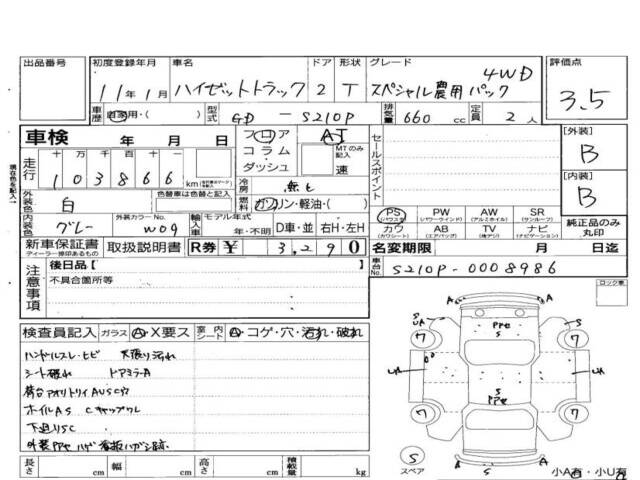 出品番号
初度登録年月 車名 ドア 形状 グレード 評価点
11年 1月 ハイゼットトラック 2 T スペシャル農用パック 4WD 3.5
車歴 自家用・( ) 型式 GD - S210P 排気量 660 cc 定員 2 人
車検 年 月 日
フロア コラム ダッシュ
AT MTのみ記入 速
セールスポイント
[外装] B
走行 十万千百十一
103866 km
[内装] B
外装色 白 色替車は色替と記入
冷房 無し
燃料 ガソリン・軽油・( )
内装色 グレー 外装カラーNo. W09
輸入車 モデル年式 年・不明 D車・並 右H・左H
PS PW AW SR
(パワステ) (パワーウィンド) (アルミホイル) (サンルーフ)
カワ AB TV ナビ
(カワシート) (エアバッグ) (後付け) (ナビゲーション)
純正品のみ丸印
新車保証書 取扱説明書 R券 ¥ 3,290
ディーラー捺印あるもの
名変期限 月 日迄
車台No. S210P-0008986
注意事項
後日品[ ]
不具合箇所等
ロック車
検査員記入 ガラス A・X要ス 室内シート A・コゲ・穴・汚れ・破れ
ハンドルスレ・ヒビ 天張り汚れ
シート破れ ドアミラーA
荷台アオリトリイAUSCワ
ホイルAS Cキャップワレ
下廻りSC
外装 ハゲ 看板ハガシ跡
長さ cm 幅 cm 高さ cm 積載量 kg
A A
S UA S
7 7
S
UA UA
S
7 7
A A
S
S スペア
小A有・小U有
現在色を記入